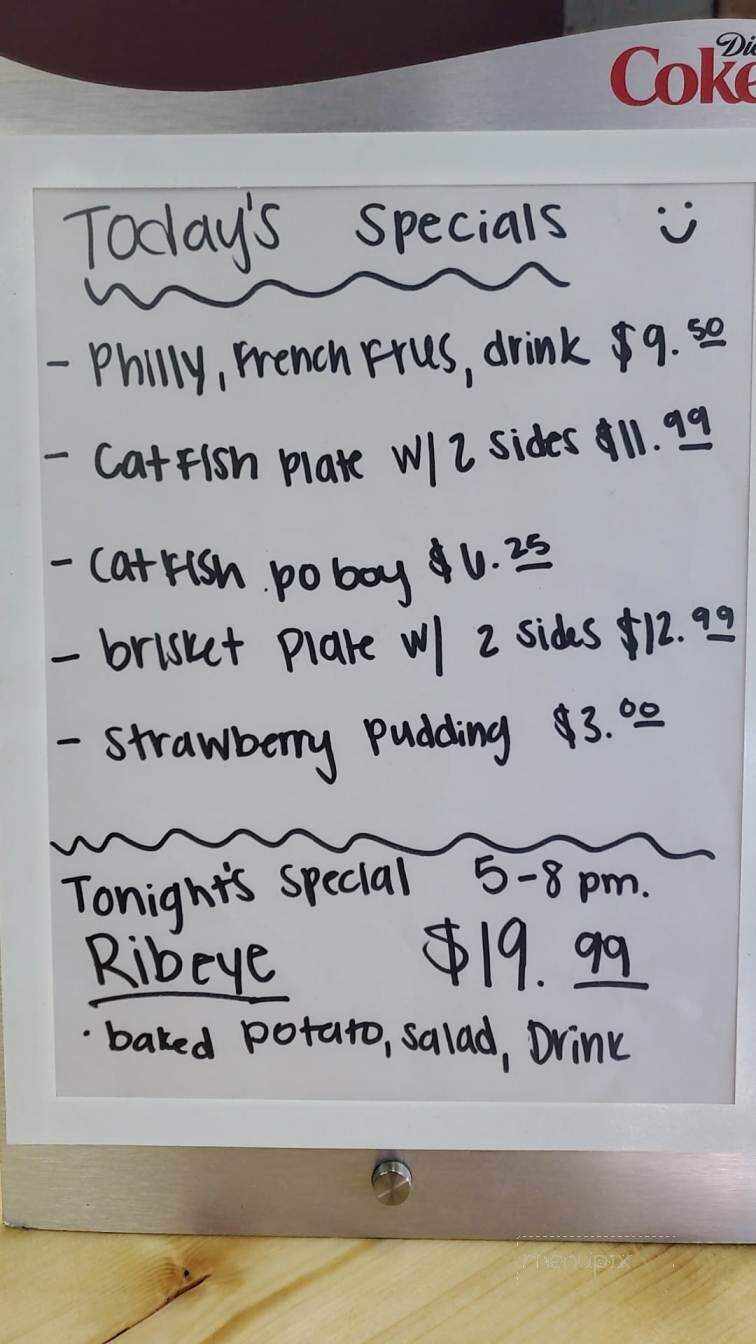 Diet
Coke
Today's Specials :)
- Philly, French Fries, drink $9.50
- Catfish plate w/ 2 sides $11.99
- Catfish po boy $6.25
- brisket plate w/ 2 sides $12.99
- Strawberry pudding $3.00
Tonight's special 5-8 pm.
Ribeye $19.99
· baked potato, salad, Drink
menupix